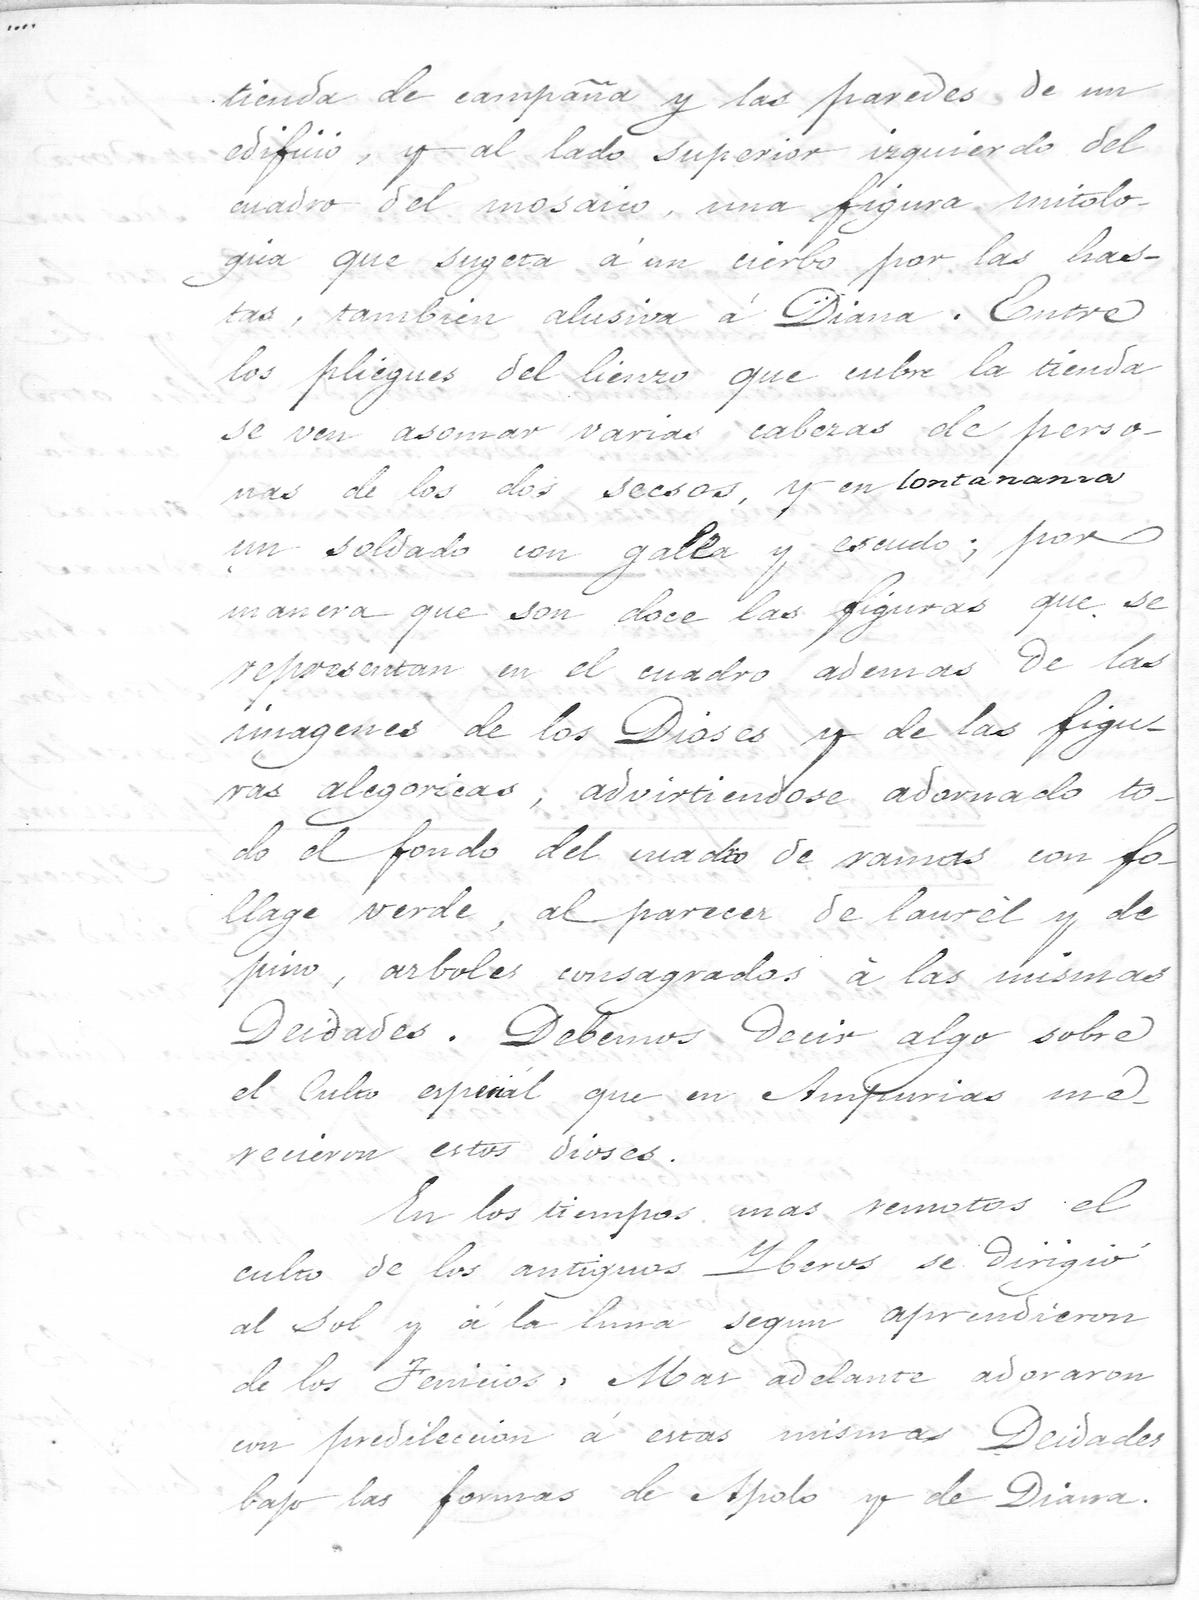 tienda de campaña y las paredes de un
edificio, y al lado superior izquierdo del
cuadro del mosaico, una figura mitolo-
gica que sugeta á un cierbo por las has-
tas, tambien alusiva á Diana. Entre
los pliegues del lienzo que cubre la tienda
se ven asomar varias cabezas de perso-
nas de los dos secsos, y en lontananza
un soldado con galea y escudo; por
manera que son doce las figuras que se
representan en el cuadro ademas de las
imagenes de los Dioses y de las figu-
ras alegoricas, advirtiendose adornado to-
do el fondo del cuadro de ramas con fo-
llage verde, al parecer de laurèl y de
pino, arboles consagrados à las mismas
Deidades. Debemos decir algo sobre
el Culto especiál que en Ampurias me-
recieron estos dioses.
En los tiempos mas remotos el
culto de los antiguos Yberos se dirigió
al Sol y á la luna segun aprendieron
de los Fenicios. Mas adelante adoraron
con predileccion á estas mismas Deidades
bajo las formas de Apolo y de Diana.